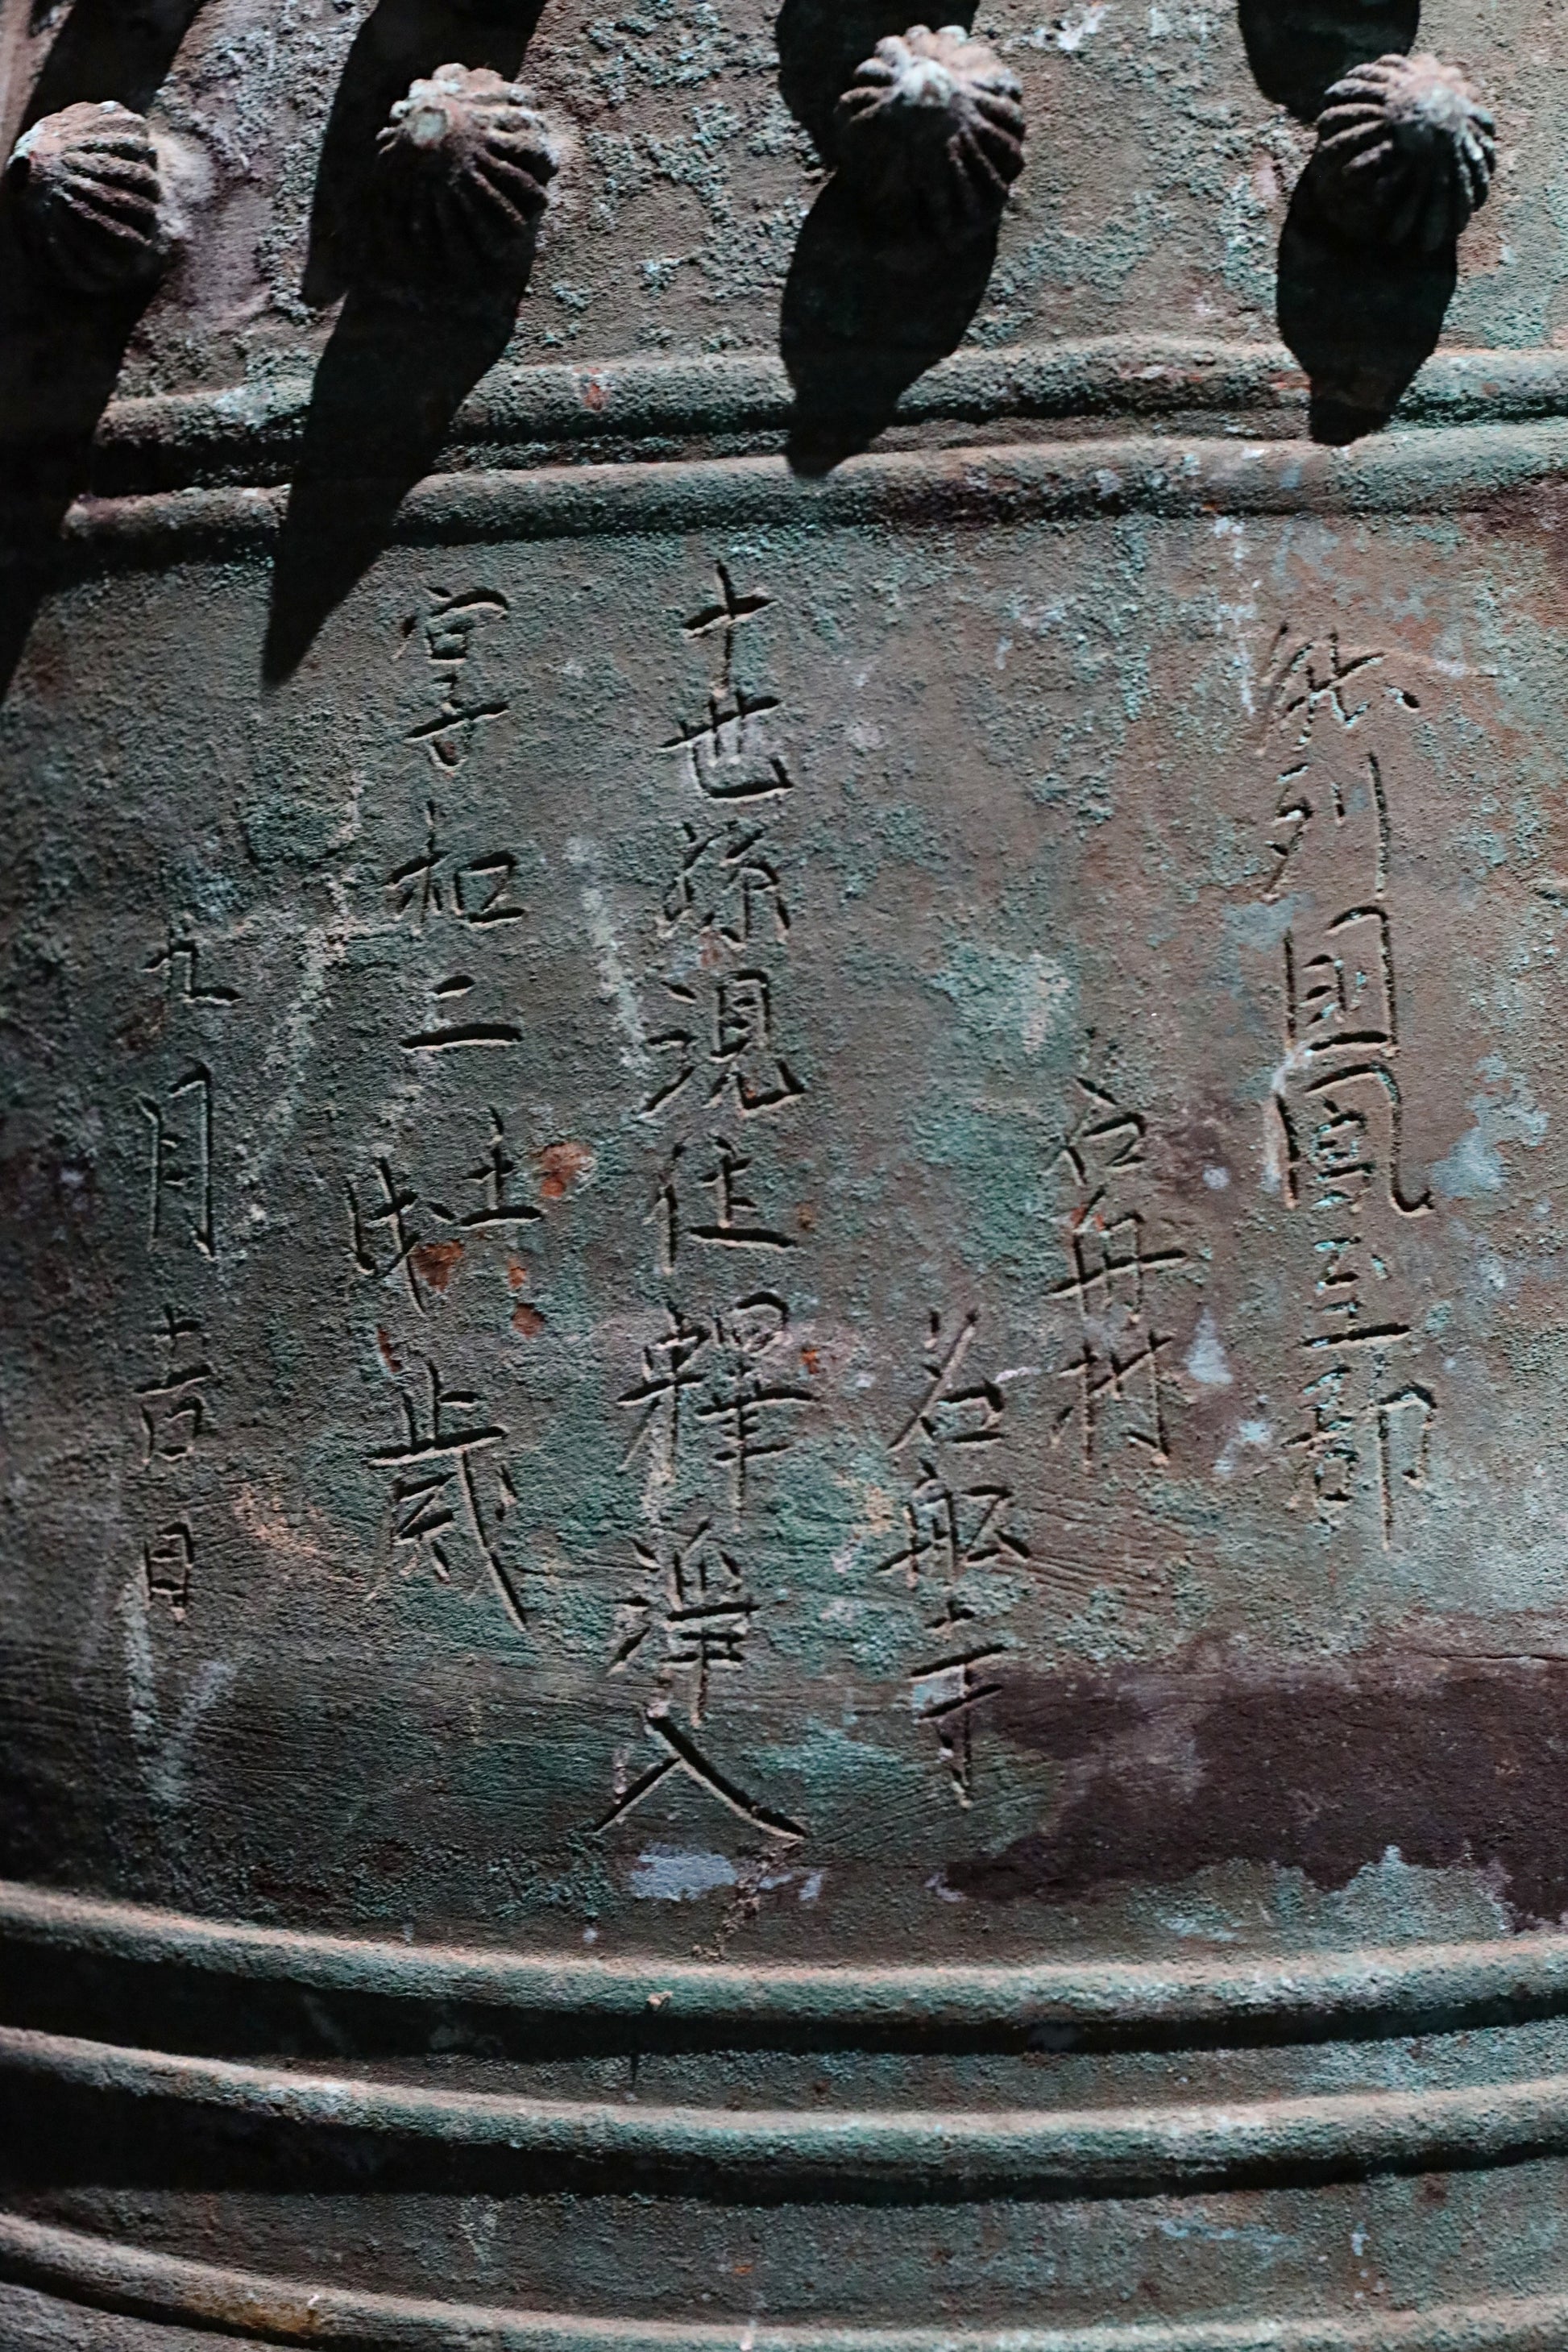 能列國鳳至郡
名舟村
名舩寺
十世孫現住釋淨入
享和二壬戌歳
九月吉日